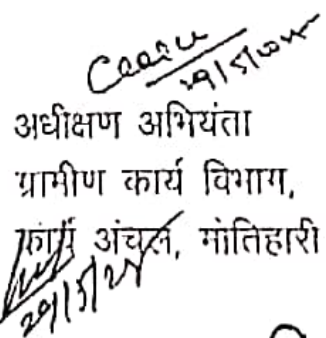 अधीक्षण अभियंता
ग्रामीण कार्य विभाग,
कार्य अंचल, मोतिहारी
29/5/24